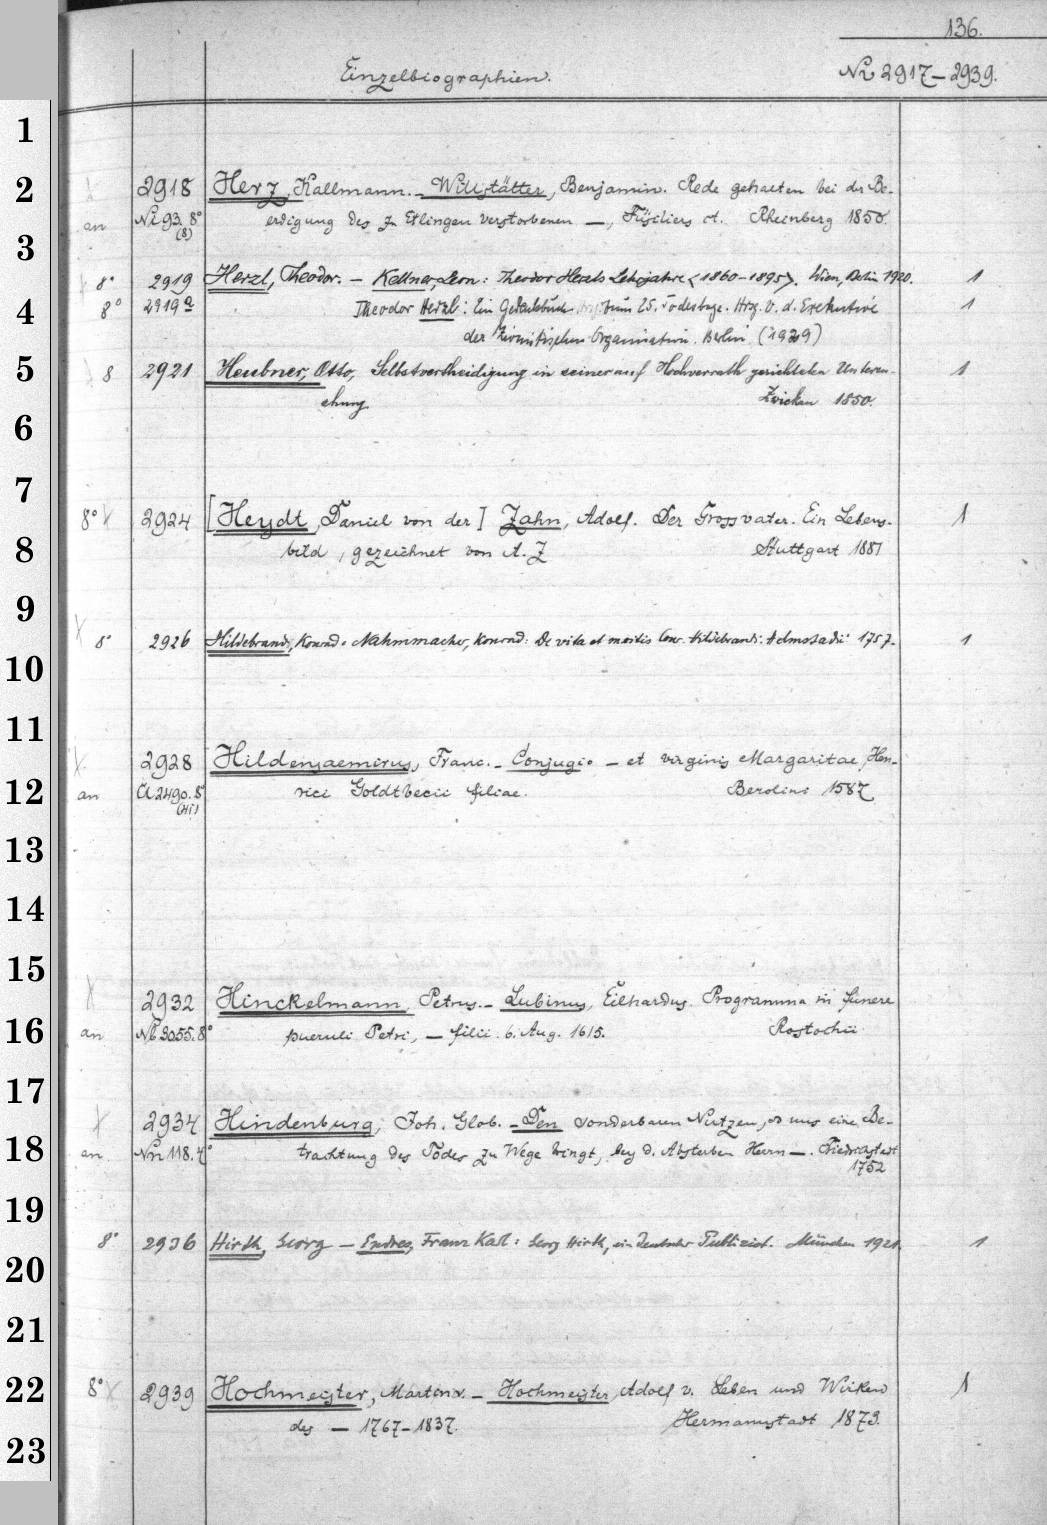 136.
Einzelbiographien.
Nr 2917–2939.
1
2 2918 Herz, Kallmann. – Willstätter, Benjamin. Rede gehalten bei der Be-
an Nr 93. 8° (8) erdigung des zu Etlingen verstorbenen —, Füsiliers et. Rheinberg 1850.
3
8° 2919 Herzl, Theodor. – Kellner, Leon: Theodor Herzls Lehrjahre <1860–1895>. Wien, Berlin 1920. 1
4 8° 2919a Theodor Herzl: Ein Gedenkbuch zum 25. Todestage. Hrsg. v. d. Exekutive 1
der Zionistischen Organisation. Berlin (1929)
5 8 2921 Heubner, Otto, Selbstvertheidigung in seiner auf Hochverrath gerichteten Untersu- 1
chung Zwickau 1850.
6
7
8° 2924 [Heydt, Daniel von der] Zahn, Adolf. Der Grossvater. Ein Lebens- 1
8 bild, gezeichnet von A. Z Stuttgart 1881
9
8° 2926 Hildebrand, Konrad. Nahmmacher, Konrad: De vita et meritis Conr. Hildebrandi. Helmstadii 1757. 1
10
11
2928 Hildensaemirus, Franc. – Conjugio – et virginis Margaritae, Hen-
12 an 2490. 8° rici Goldtbecii filiae. Berolini 1587
13
14
15
2932 Hinckelmann, Petrus. – Lubinus, Eilhardus. Programma in funere
16 an 3055. 8° pueruli Petri, — filii. 6. Aug. 1615. Rostochii
17
2934 Hindenburg, Joh. Glob. – Den sonderbaren Nutzen, so uns eine Be-
18 an Nn 118. 4° trachtung des Todes zu Wege bringt, bey d. Absterben Herrn —. Friedrichstadt
1752
19
8° 2936 Hirth, Georg – Endres, Franz Karl: Georg Hirth, ein deutscher Publizist. München 1921. 1
20
21
22 8° 2939 Hochmeister, Martin v. – Hochmeister, Adolf v. Leben und Wirken 1
des — 1767–1837. Hermannstadt 1873.
23